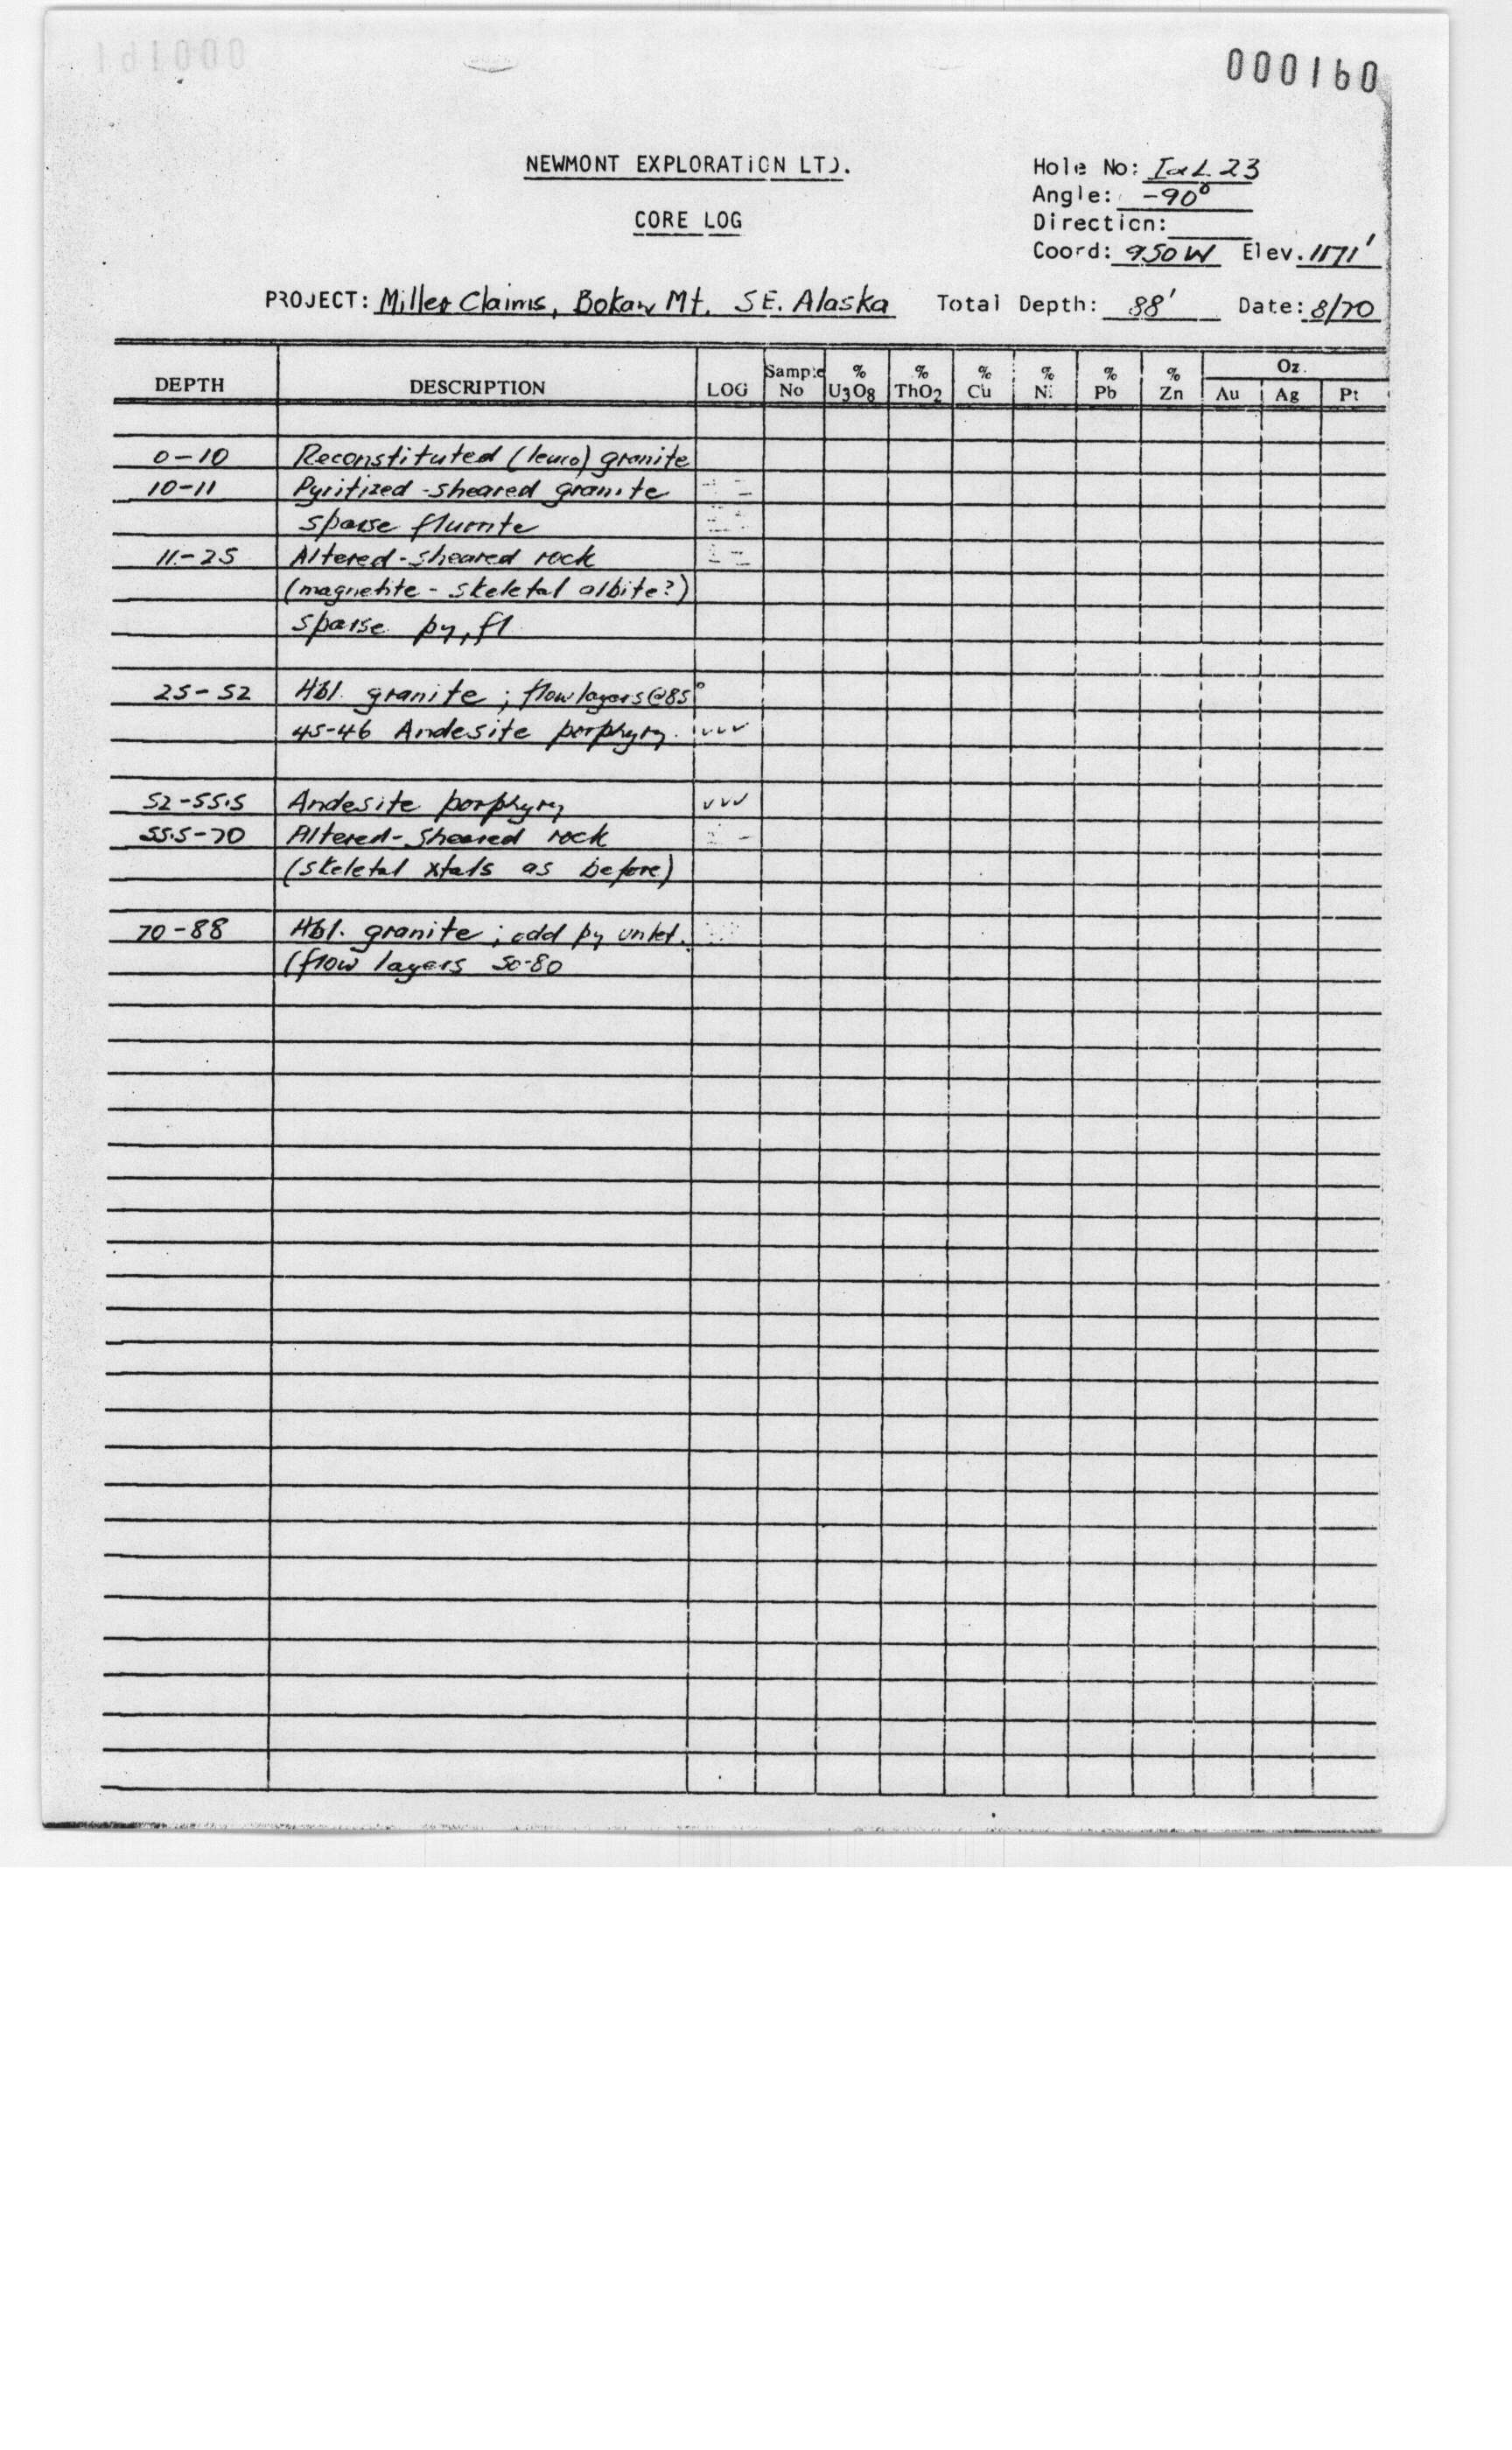 000160
NEWMONT EXPLORATION LTD.
CORE LOG
Hole No: I&L 23
Angle: -90°
Direction:
Coord: 950W Elev. 1171'
PROJECT: Miller Claims, Bokan Mt. SE. Alaska Total Depth: 88' Date: 8/70
DEPTH DESCRIPTION LOG Sample No % U3O8 % ThO2 % Cu % Ni % Pb % Zn Oz. Au Ag Pt
0-10 Reconstituted (leuco) granite
10-11 Pyritized-sheared granite
sparse fluorite
11-25 Altered-sheared rock
(magnetite - skeletal albite?)
sparse py, fl
25-52 Hbl. granite; flow layers @85°
45-46 Andesite porphyry. vvv
52-55.5 Andesite porphyry vvv
55.5-70 Altered-sheared rock
(skeletal xtals as before)
70-88 Hbl. granite; odd py vnlet.
(flow layers 50-80